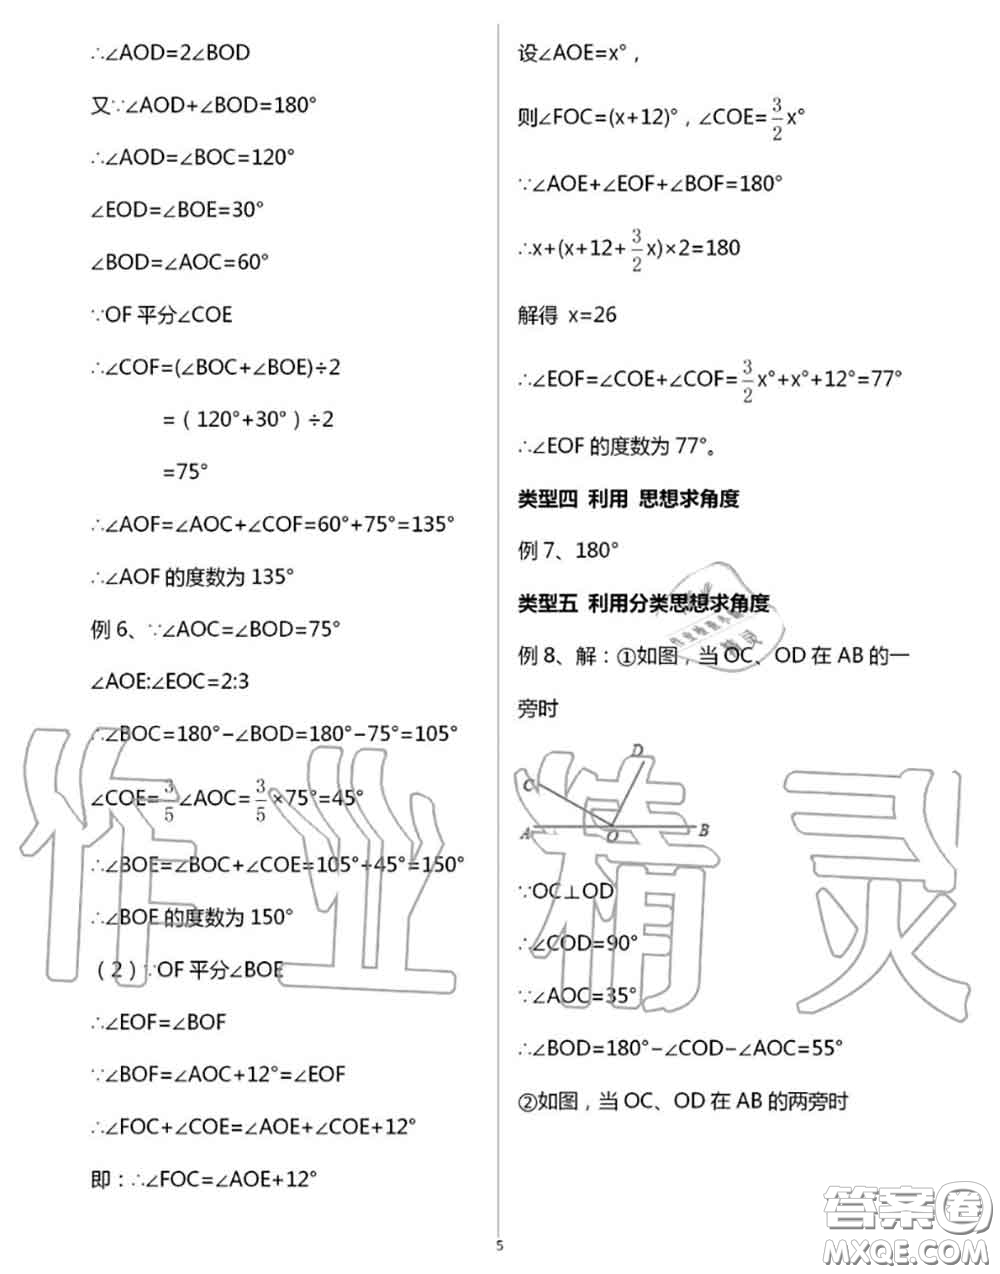 ∴∠AOD=2∠BOD
又∵∠AOD+∠BOD=180°
∴∠AOD=∠BOC=120°
∠EOD=∠BOE=30°
∠BOD=∠AOC=60°
∵OF 平分∠COE
∴∠COF=(∠BOC+∠BOE)÷2
=（120°+30°）÷2
=75°
∴∠AOF=∠AOC+∠COF=60°+75°=135°
∴∠AOF 的度数为 135°
例 6、∵∠AOC=∠BOD=75°
∠AOE:∠EOC=2:3
∴∠BOC=180°−∠BOD=180°−75°=105°
∠COE=3/5∠AOC=3/5×75°=45°
∴∠BOE=∠BOC+∠COE=105°+45°=150°
∴∠BOE 的度数为 150°
（2）∵OF 平分∠BOE
∴∠EOF=∠BOF
∵∠BOF=∠AOC+12°=∠EOF
∴∠FOC+∠COE=∠AOE+∠COE+12°
即：∴∠FOC=∠AOE+12°
设∠AOE=x°，
则∠FOC=(x+12)°，∠COE=3/2x°
∵∠AOE+∠EOF+∠BOF=180°
∴x+(x+12+3/2x)×2=180
解得 x=26
∴∠EOF=∠COE+∠COF=3/2x°+x°+12°=77°
∴∠EOF 的度数为 77°。
类型四 利用 思想求角度
例 7、180°
类型五 利用分类思想求角度
例 8、解：①如图，当 OC、OD 在 AB 的一
旁时
D
C
A O B
∵OC⊥OD
∴∠COD=90°
∵∠AOC=35°
∴∠BOD=180°−∠COD−∠AOC=55°
②如图，当 OC、OD 在 AB 的两旁时
5
作业精灵
精灵
答案圈
MXQE.COM